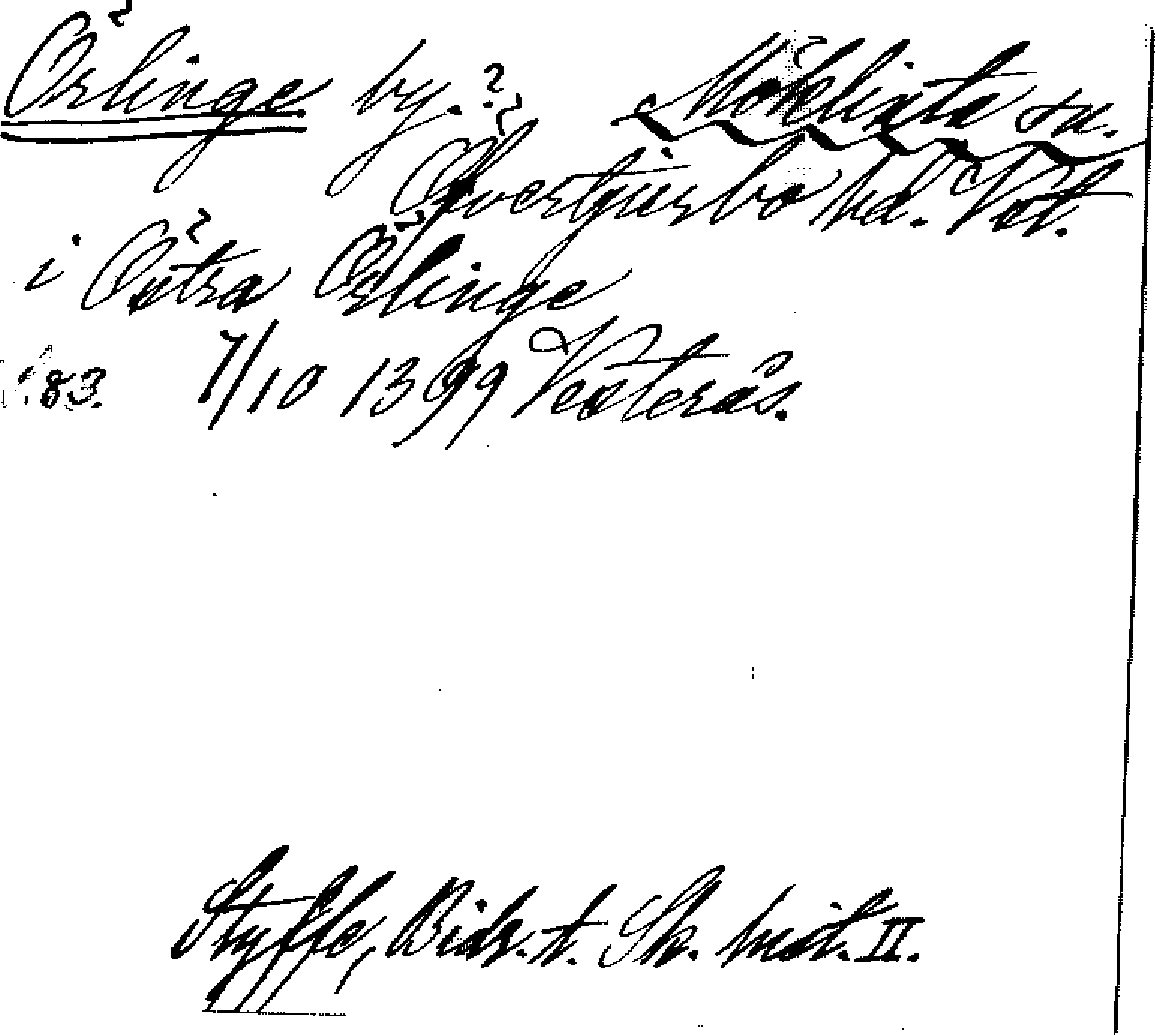 Örlinge by.? Möklinta sn.
Övertjurbo hd. Vstm.
i Östra Örlinge
183. 7/10 1399 Vesterås.
Styffe, Bidr. t. Sk. hist. II.